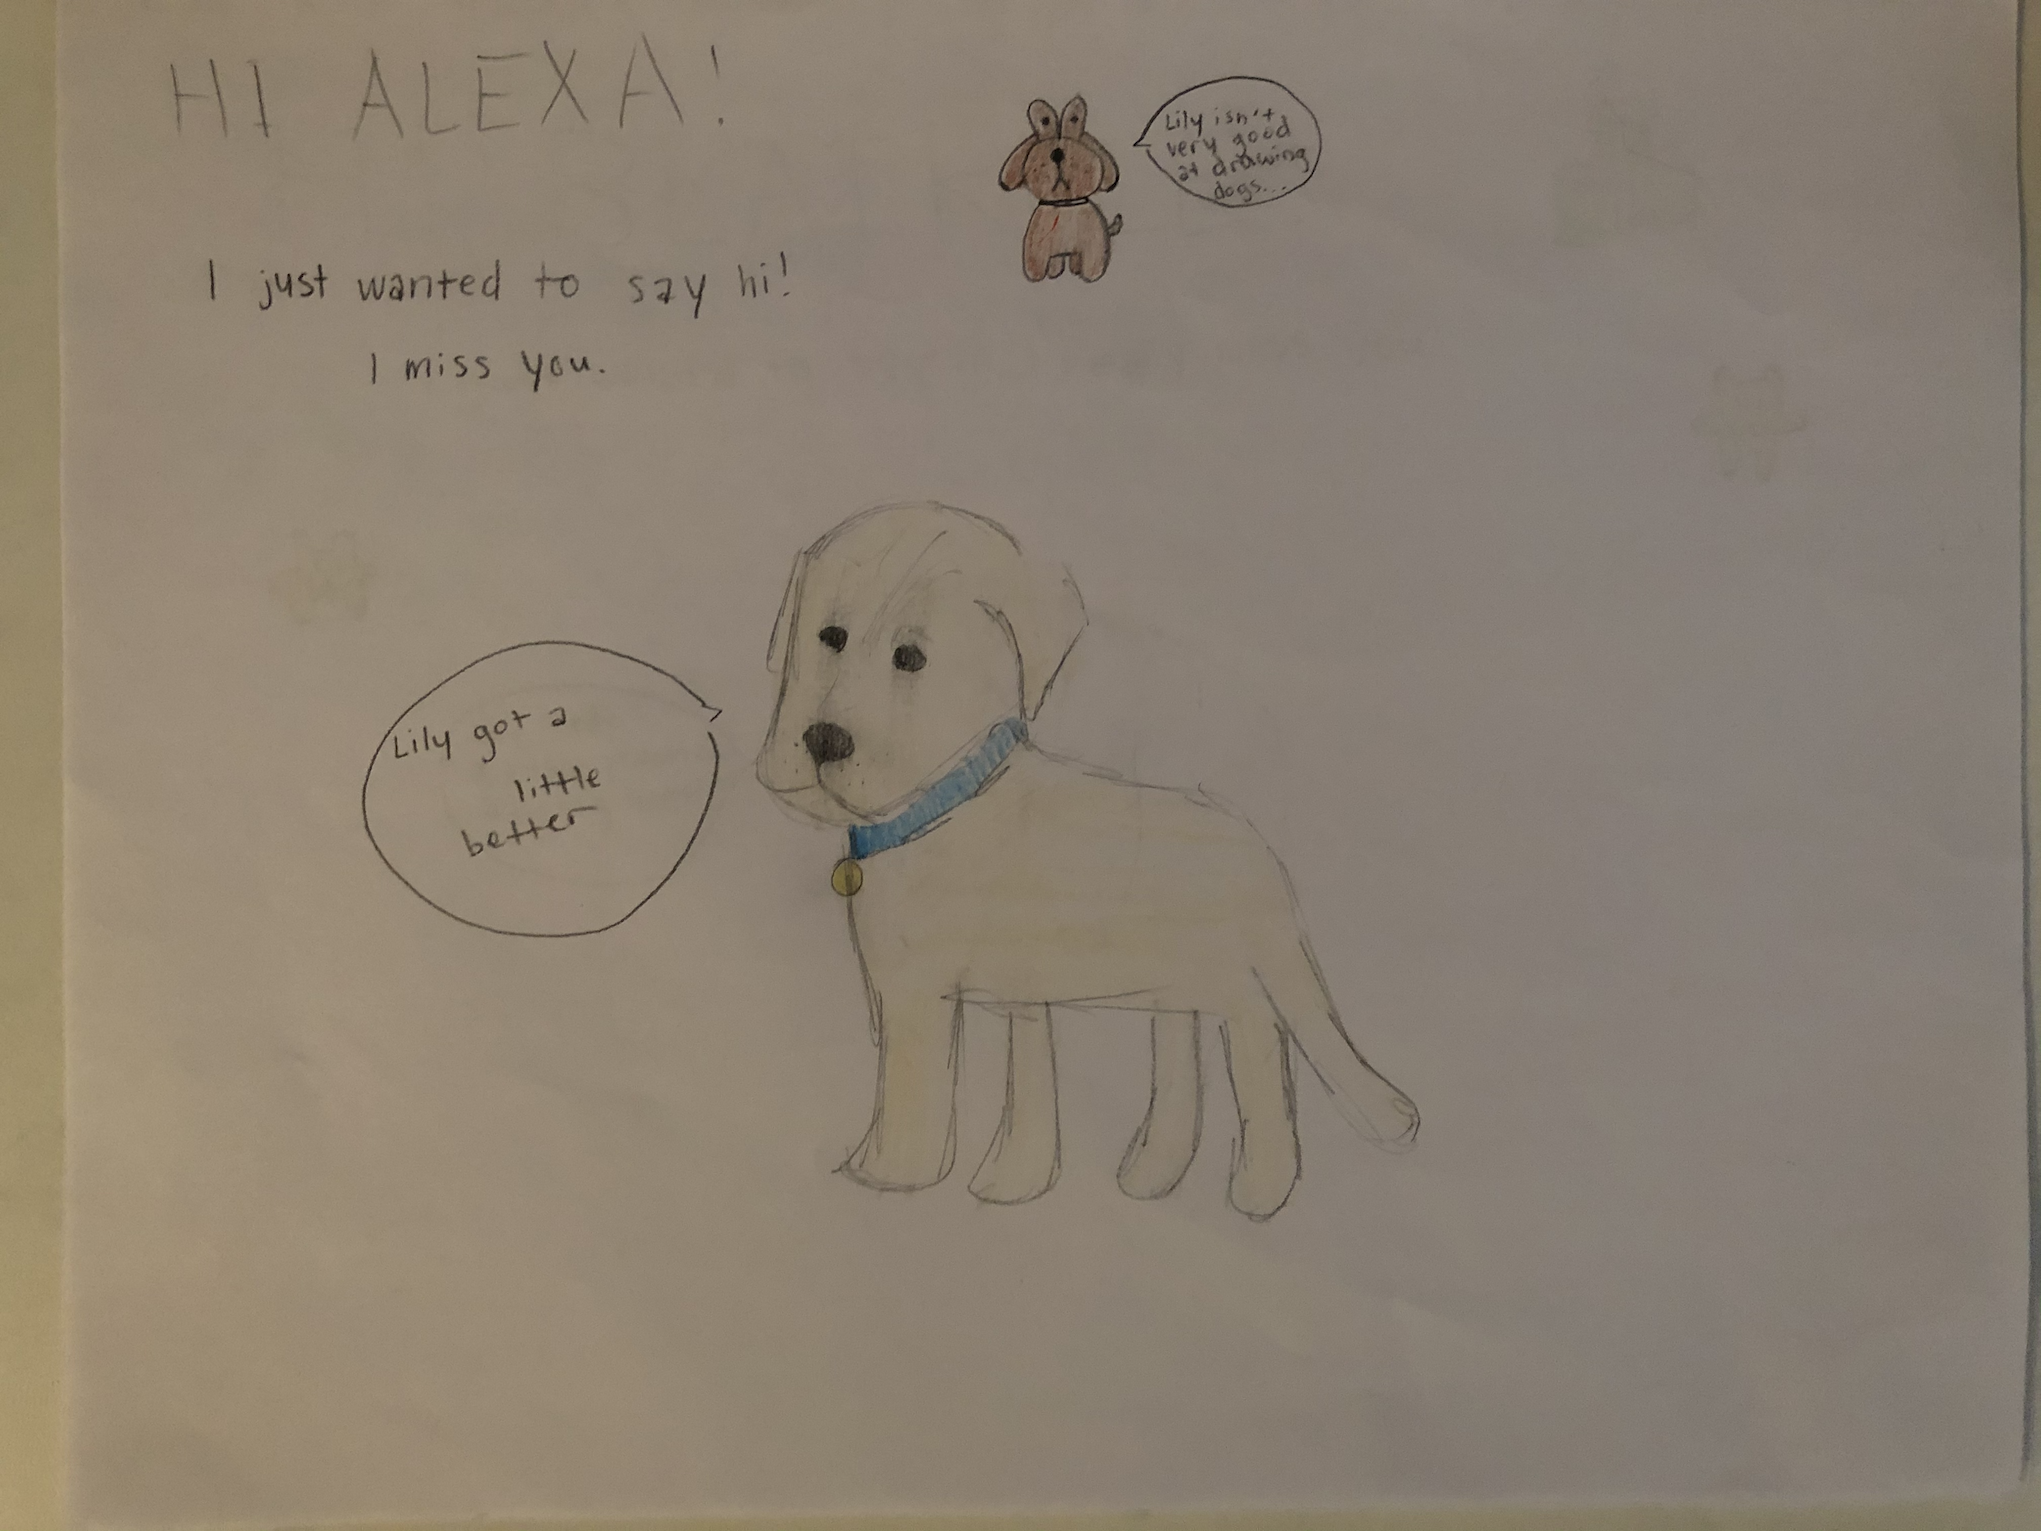 HI ALEXA!
Lily isn't
very good
at drawing
dogs...
I just wanted to say hi!
I miss you.
Lily got a
little
better